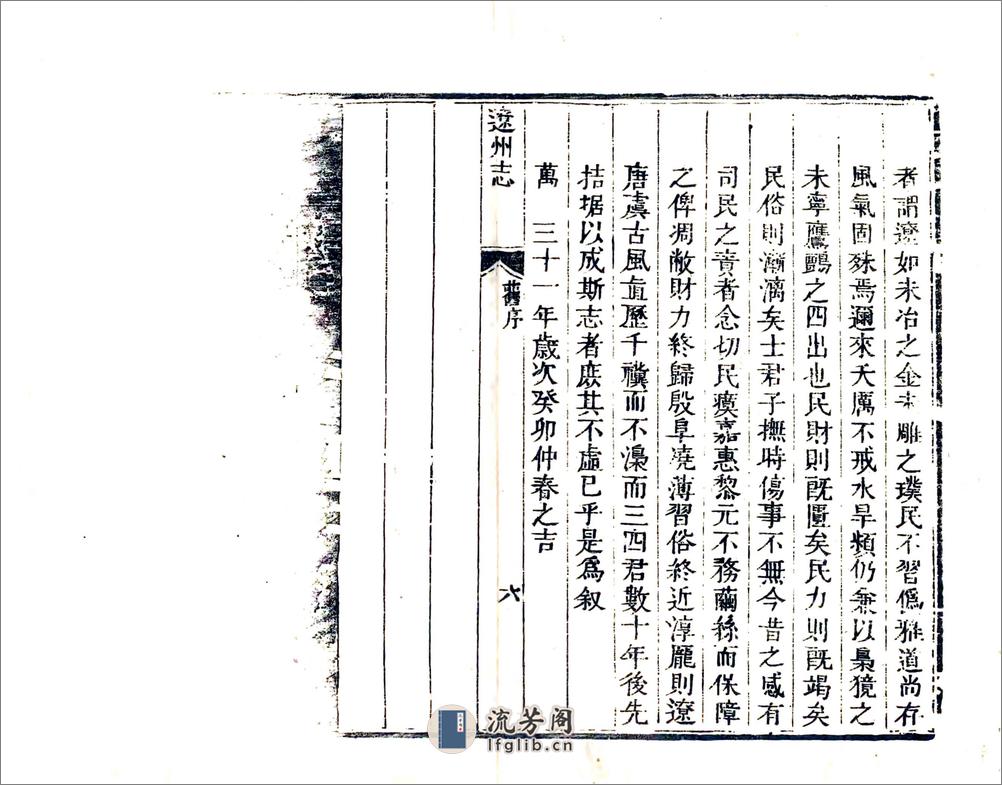 者謂遼如未冶之金未雕之璞民不習僞雅道尚存
風氣固殊焉邇來天厲不戒水旱頻仍兼以梟獍之
未寧鷹鸇之四出也民財則旣匱矣民力則旣竭矣
民俗則漸漓矣士君子撫時傷事不無今昔之感有
司民之責者念切民瘼嘉惠黎元不務繭絲而保障
之俾凋敝財力終歸殷阜澆薄習俗終近淳龎則遼
唐虞古風直歷千禩而不澆而三四君數十年後先
拮据以成斯志者庶其不虛已乎是爲叙
萬 三十一年歲次癸卯仲春之吉
遼州志
舊序
六
流芳阁
lfglib.cn